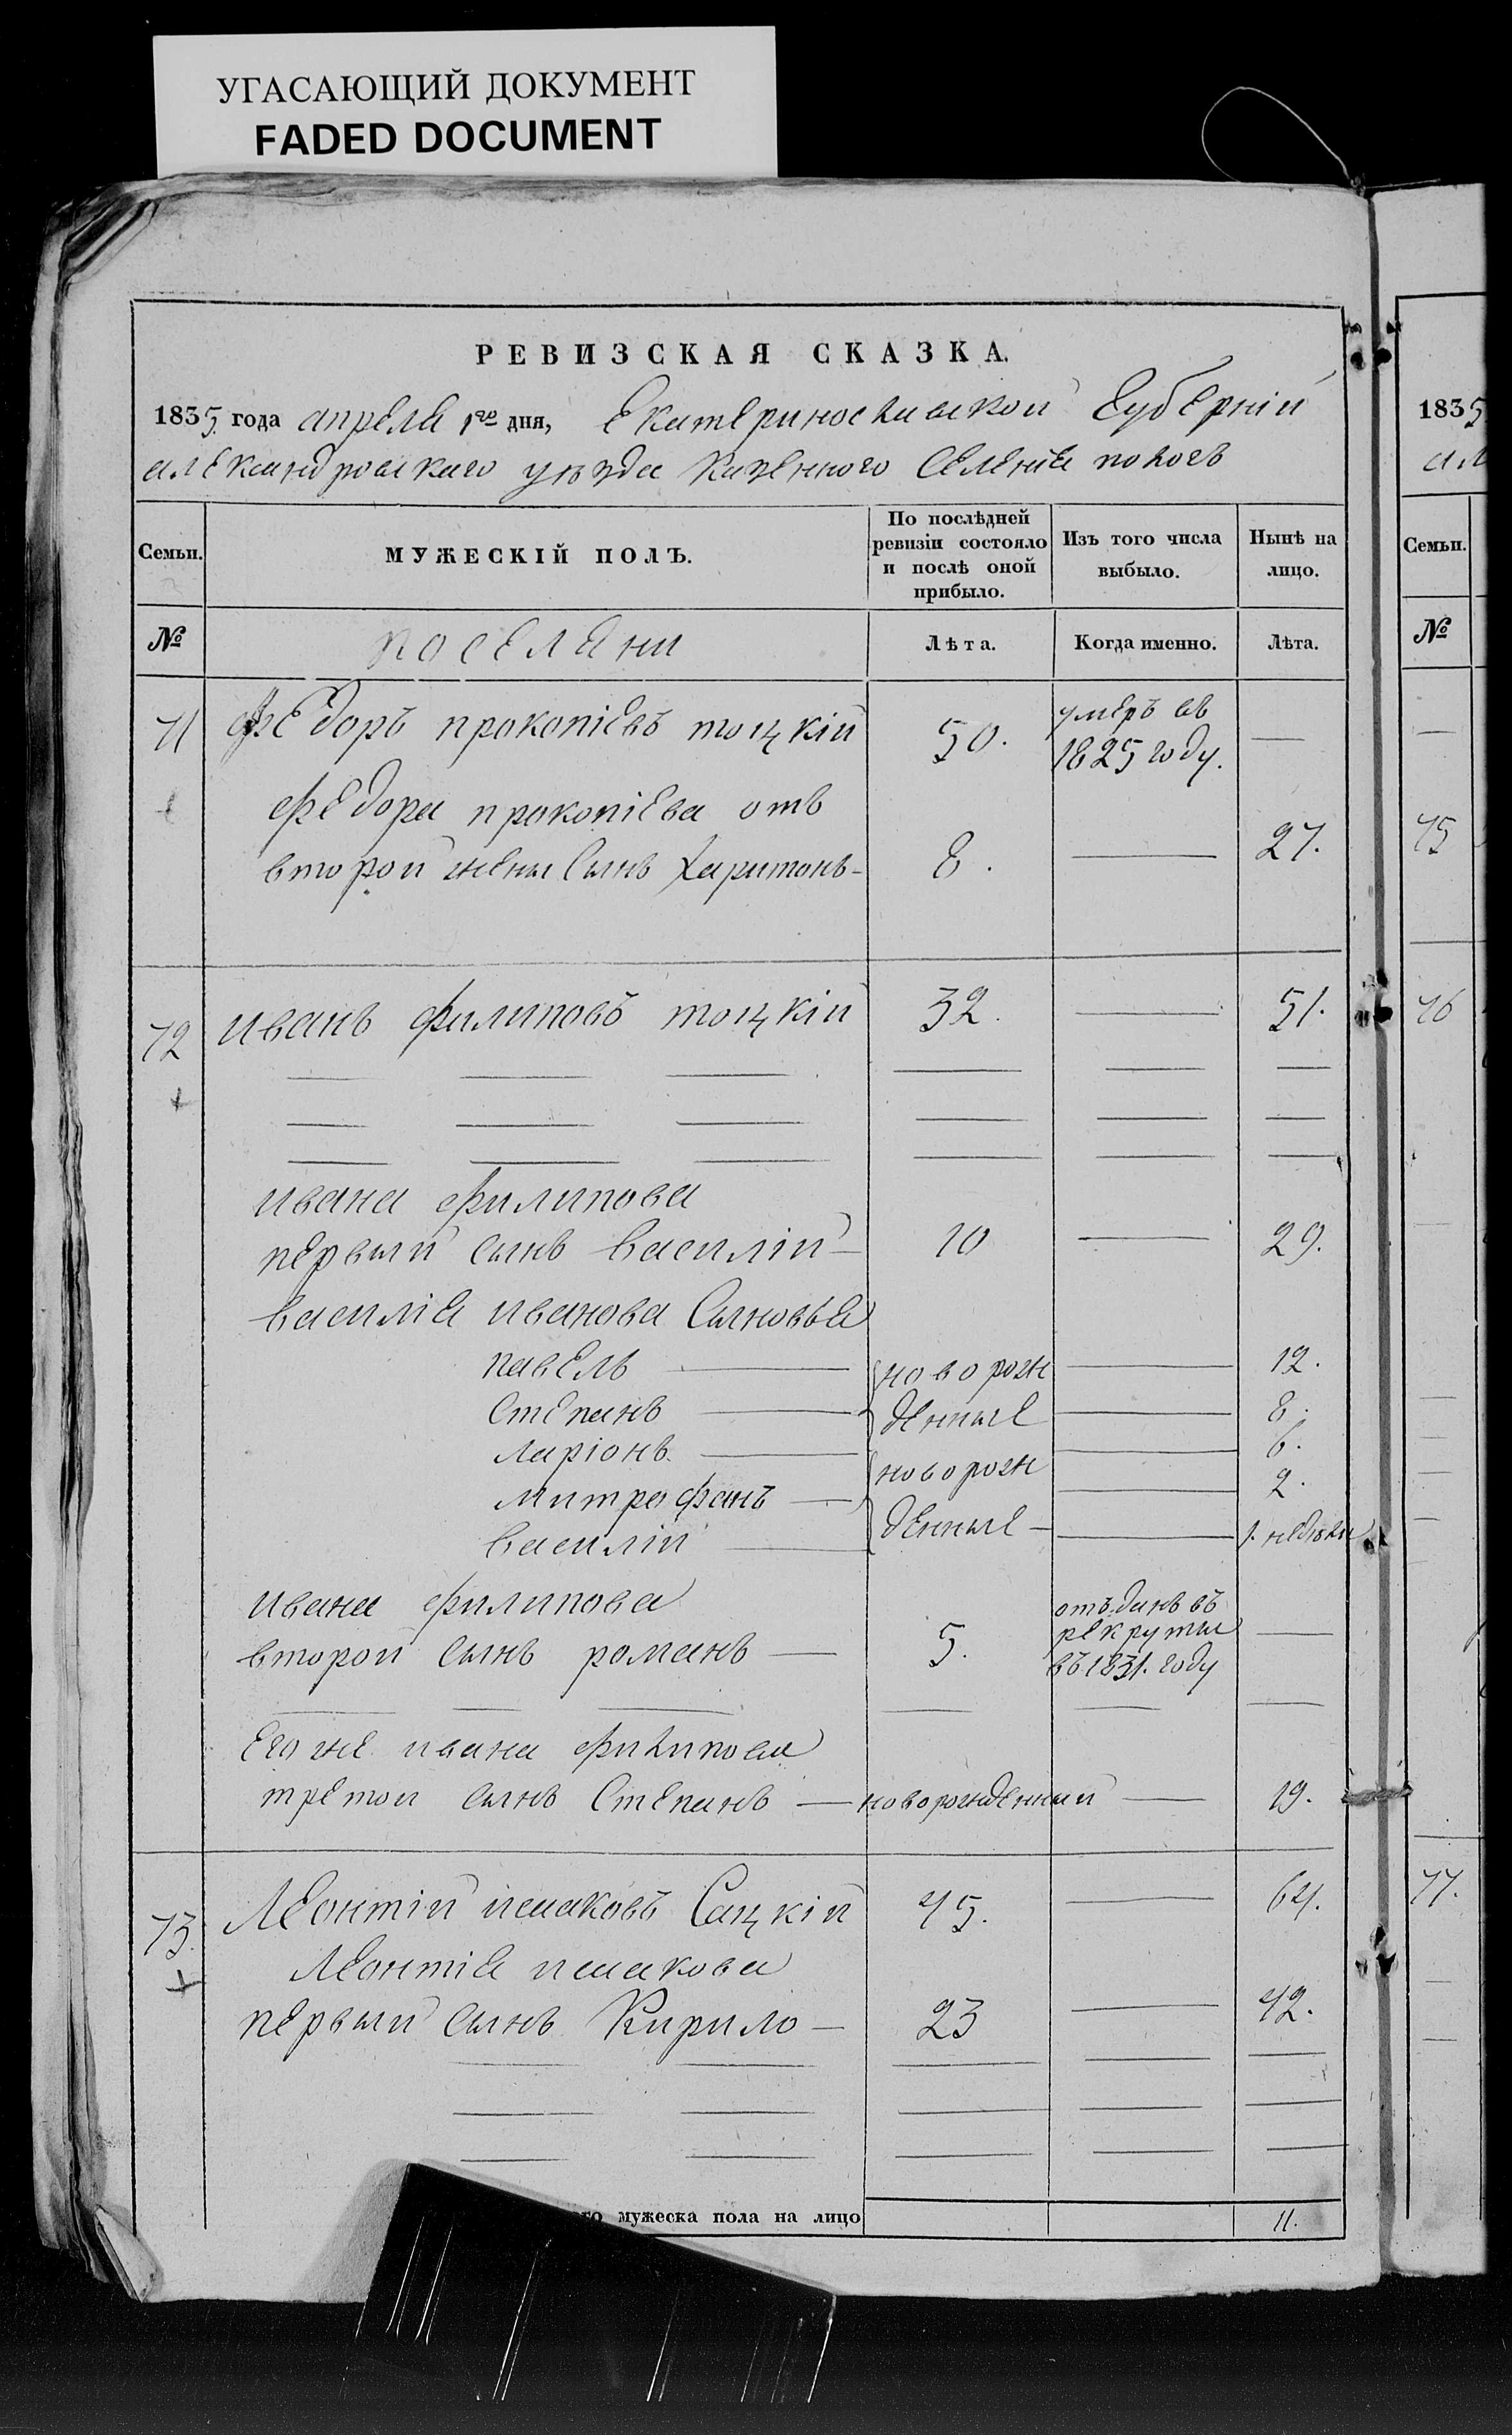 УГАСАЮЩИЙ ДОКУМЕНТ
FADED DOCUMENT
РЕВИЗСКАЯ СКАЗКА.
1835 года апреля 1го дня, Екатеринославской Губернiй
александровскаго уѣзда Казенного Селенiя пологъ
Семьи.
МУЖЕСКIЙ ПОЛЪ.
По послѣдней ревизiи состояло и послѣ оной прибыло.
Изъ того числа выбыло.
Нынѣ на лицо.
№
поселяни
Лѣта.
Когда именно.
Лѣта.
71 Федоръ прокопiевъ тоцкiй 50. умеръ въ 1825 году. —
федора прокопiева отъ
второй жены Сынъ Харитонъ — 8. — 27.
72 иванъ филиповъ тоцкiй 32. — 51.
ивана филипова
первый сынъ василiй — 10 — 29.
василiя иванова Сыновья
павелъ — новорож — 12.
Степанъ — денные — 8.
ларiонъ — новорож — 6.
митрофанъ — денные — 2.
василiй — 1. недѣли
ивана филипова
второй сынъ романъ — 5. отъданъ въ рекруты въ 1831. году —
Его же ивана филипова
третой сынъ Степанъ — новорожденный — 19.
73. Леонтiй исаковъ Сацкiй 45. — 64.
Леонтiя исакова
первый сынъ Кирило — 23 — 42.
го мужеска пола на лицо 11.
1835
ал
Семьи.
№
75
76
77.